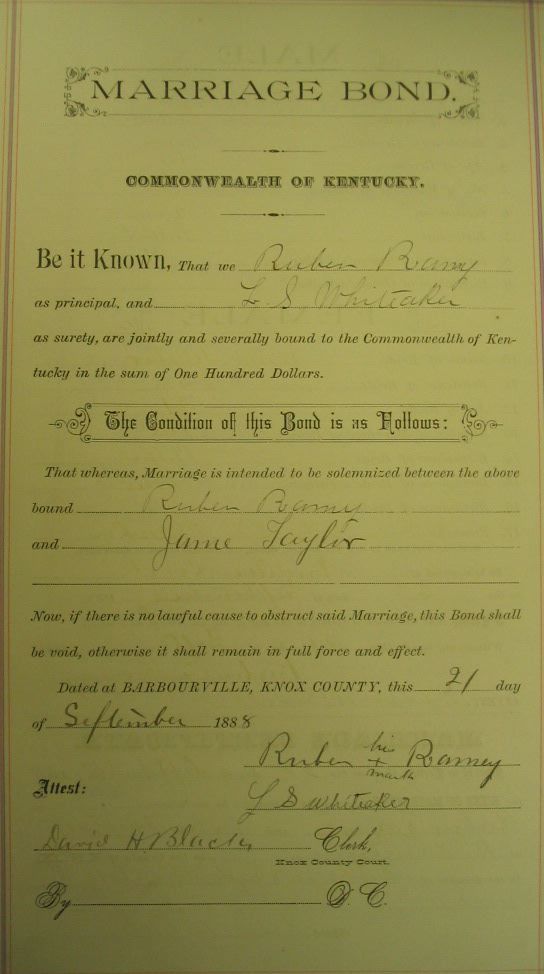 MARRIAGE BOND.
COMMONWEALTH OF KENTUCKY.
Be it Known, That we Ruben Ramy
as principal, and L. S Whiteaker
as surety, are jointly and severally bound to the Commonwealth of Ken-
tucky in the sum of One Hundred Dollars.
The Condition of this Bond is as Follows:
That whereas, Marriage is intended to be solemnized between the above
bound Ruben Ramy
and Jame Taylor
Now, if there is no lawful cause to obstruct said Marriage, this Bond shall
be void, otherwise it shall remain in full force and effect.
Dated at BARBOURVILLE, KNOX COUNTY, this 21 day
of September 1888
Ruben his x mark Ramey
Attest:
L S Whiteaker
David H. Black, Clerk,
Knox County Court.
By D. C.